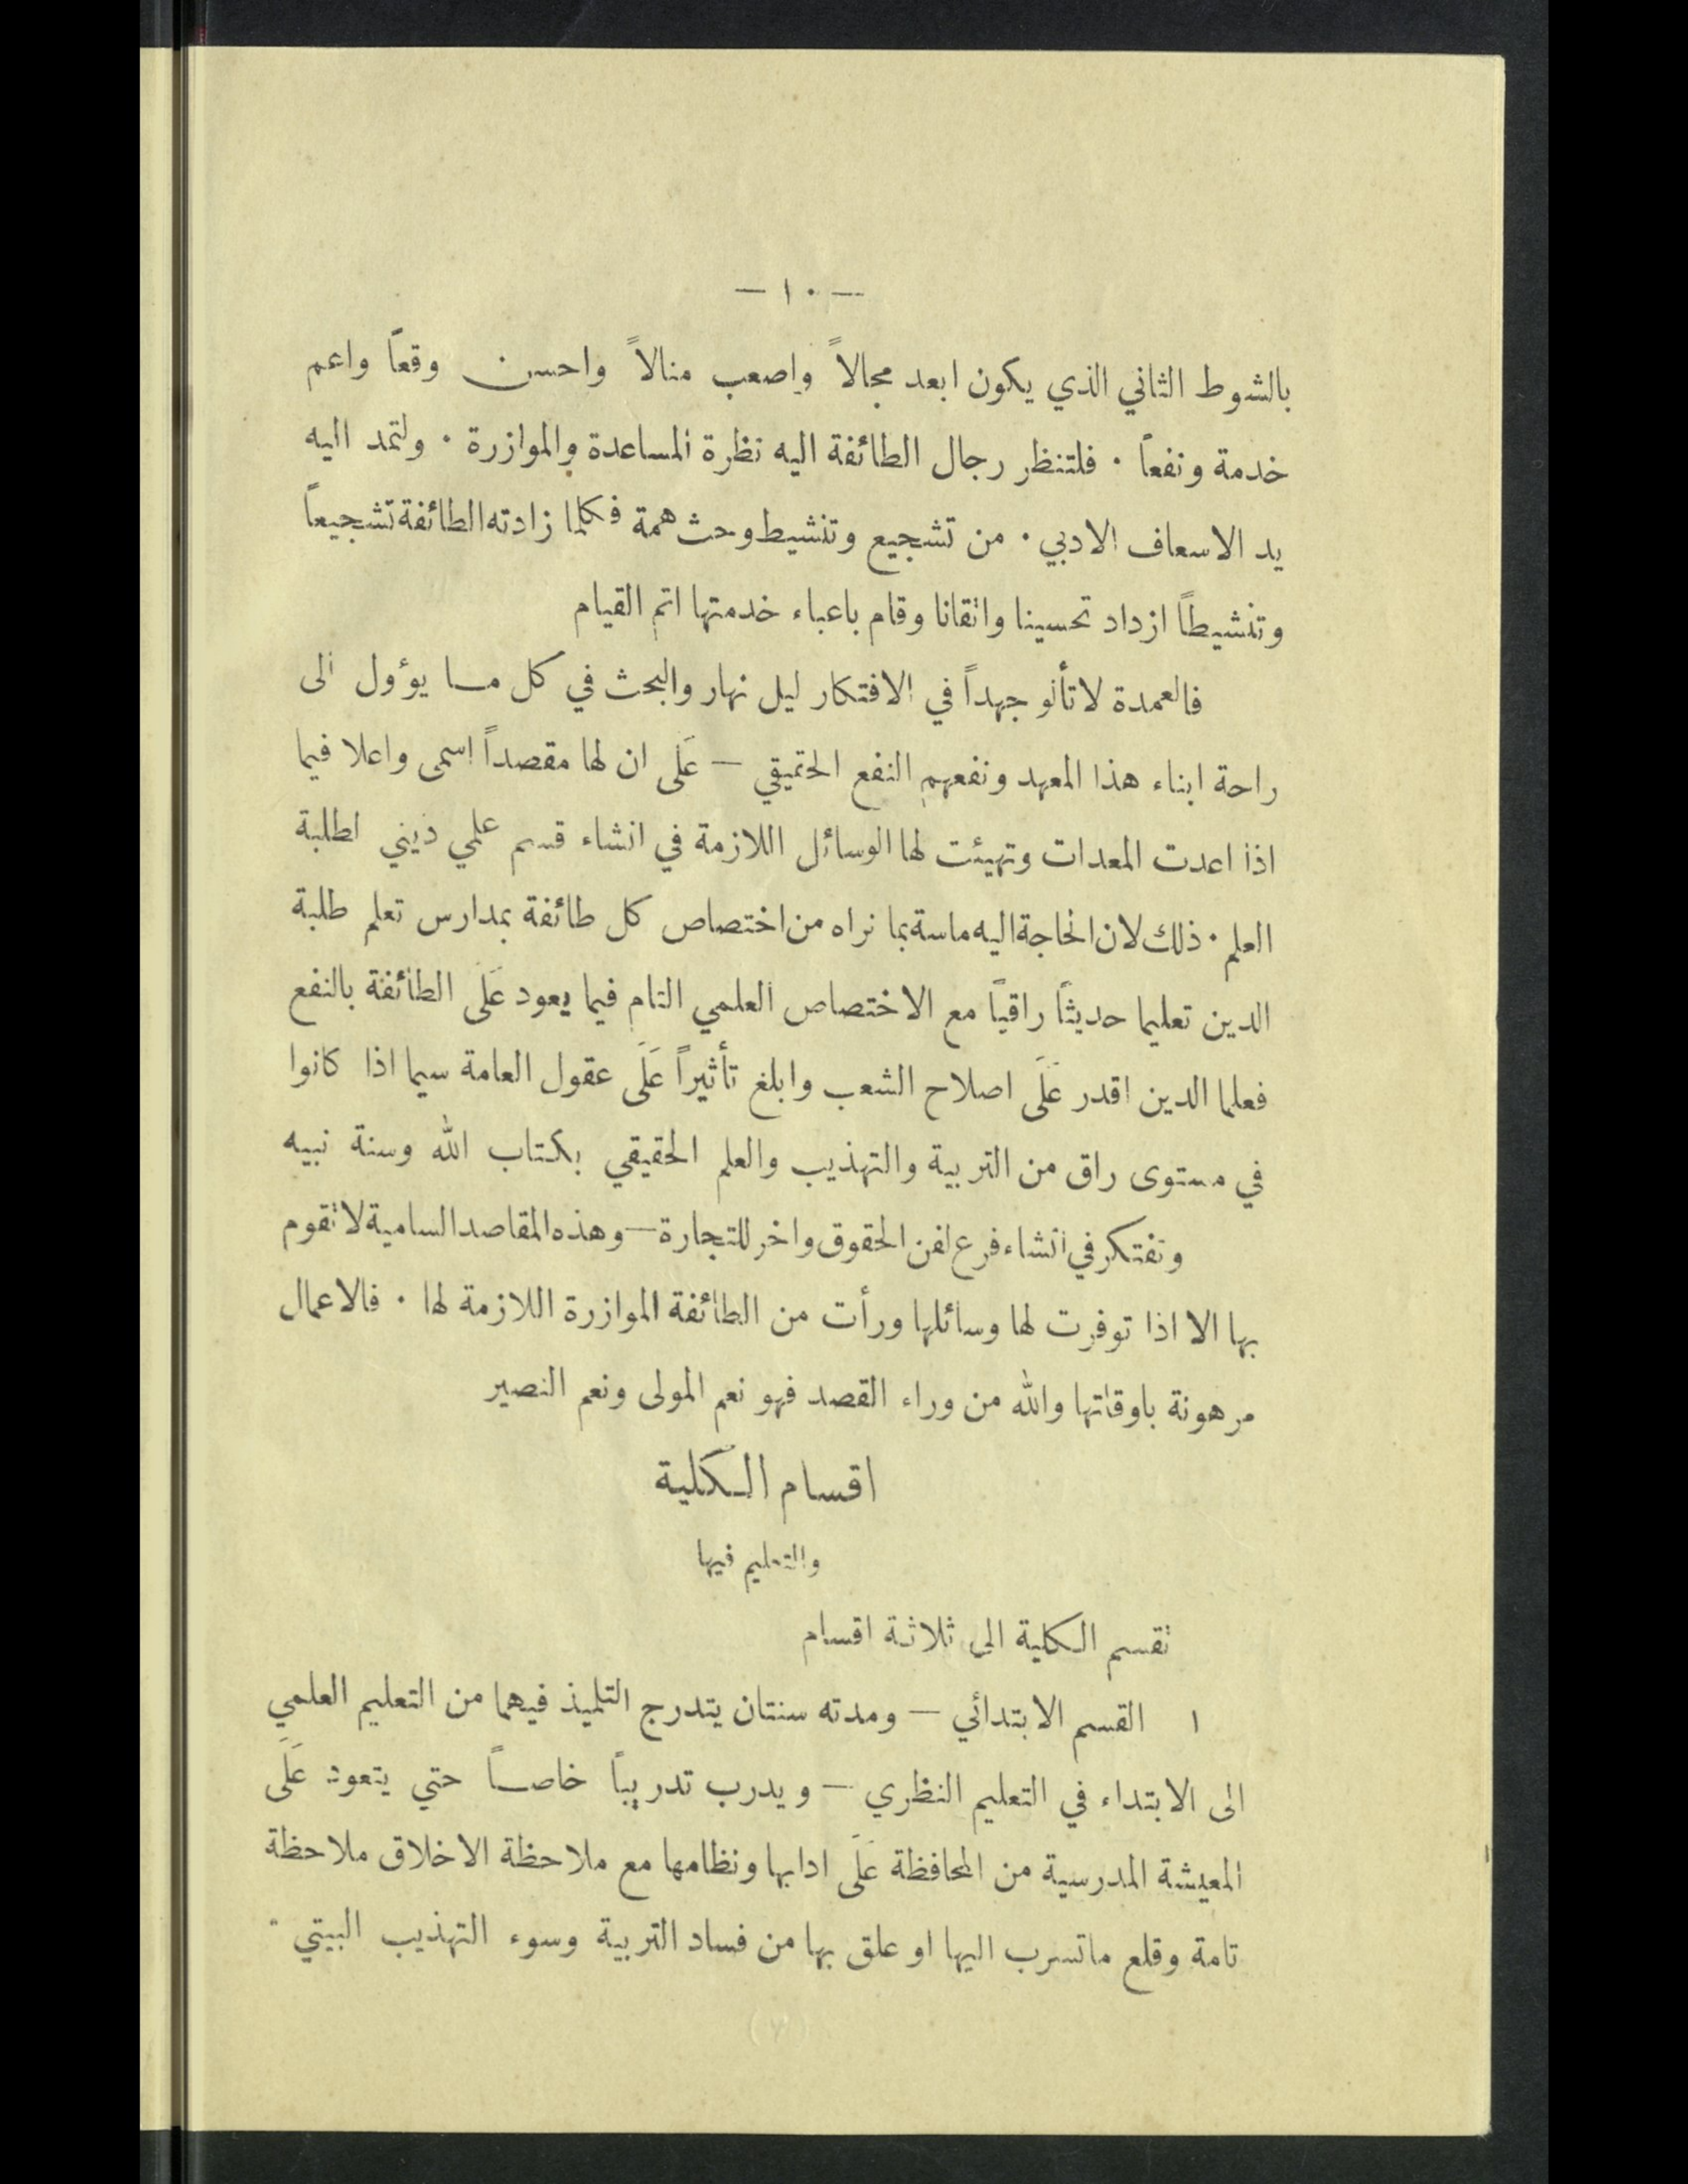 — ١٠ —
بالشوط الثاني الذي يكون ابعد مجالاً واصعب منالاً واحسن وقعاً واعم
خدمة ونفعاً . فلتنظر رجال الطائفة اليه نظرة المساعدة والموازرة . ولتمد اليه
يد الاسعاف الادبي . من تشجيع وتنشيط وحث همة فكلما زادته الطائفة تشجيعاً
وتنشيطاً ازداد تحسينا واتقانا وقام باعباء خدمتها اتم القيام
فالعمدة لا تألو جهداً في الافتكار ليل نهار والبحث في كل مـا يؤول الى
راحة ابناء هذا المعهد ونفعهم النفع الحقيقي — عَلَى ان لها مقصداً اسمى واعلا فيما
اذا اعدت المعدات وتهيئت لها الوسائل اللازمة في انشاء قسم علمي ديني لطلبة
العلم . ذلك لان الحاجة اليه ماسة بما نراه من اختصاص كل طائفة بمدارس تعلم طلبة
الدين تعليما حديثاً راقياً مع الاختصاص العلمي التام فيما يعود عَلَى الطائفة بالنفع
فعلما الدين اقدر عَلَى اصلاح الشعب وابلغ تأثيراً عَلَى عقول العامة سيما اذا كانوا
في مستوى راق من التربية والتهذيب والعلم الحقيقي بكتاب الله وسنة نبيه
ونفتكر في انشاء فرع لفن الحقوق واخر للتجارة — وهذه المقاصد السامية لا تقوم
بها الا اذا توفرت لها وسائلها ورأت من الطائفة الموازرة اللازمة لها . فالاعمال
مرهونة باوقاتها والله من وراء القصد فهو نعم المولى ونعم النصير
اقسام الـكلية
والتعليم فيها
تقسم الـكلية الى ثلاثة اقسام
١ القسم الابتدائي — ومدته سنتان يتدرج التلميذ فيهما من التعليم العلمي
الى الابتداء في التعليم النظري — ويدرب تدريباً خاصـاً حتي يتعود عَلَى
المعيشة المدرسية من المحافظة عَلَى ادابها ونظامها مع ملاحظة الاخلاق ملاحظة
تامة وقلع ماتسرب اليها او علق بها من فساد التربية وسوء التهذيب البيتي .